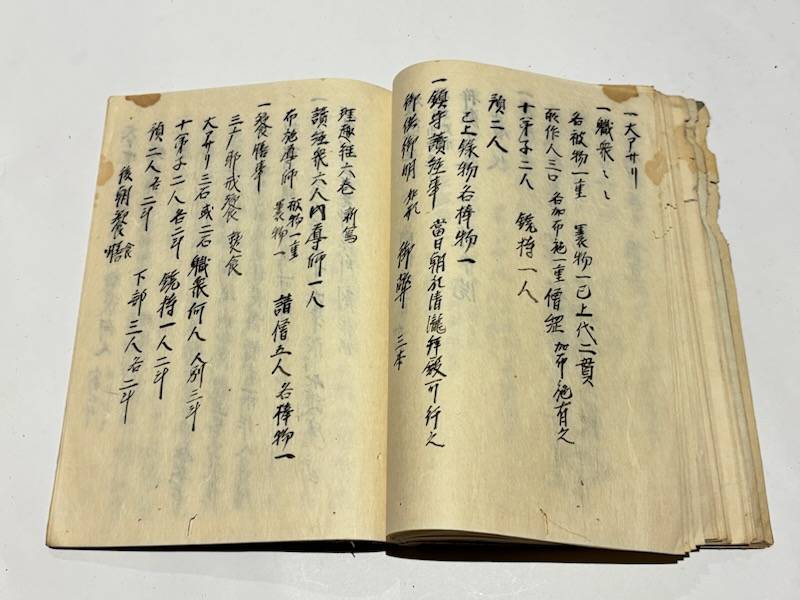 一大アサリ
一職衆〻
各被物一重 裹物一已上代二貫
所作人三口 各加布施一重僧綱加布施有之
十弟子二人 鐃持一人
預二人
已上緑物各捧物一
一鎮守讀経事 當日朝於清瀧拜殿可行之
御供御明 御幣 三本
理趣経六巻 新寫
讀経衆六人内導師一人
布施導師 被物一重 裹物一 請僧五人各捧物一
一饗膳事
三ケ 戒 食
大アサリ三石或二石 職衆何人 人別三斗
十弟子二人各二斗 鐃持一人二斗
預二人各二斗 下部三人各二斗
後朝饗膳